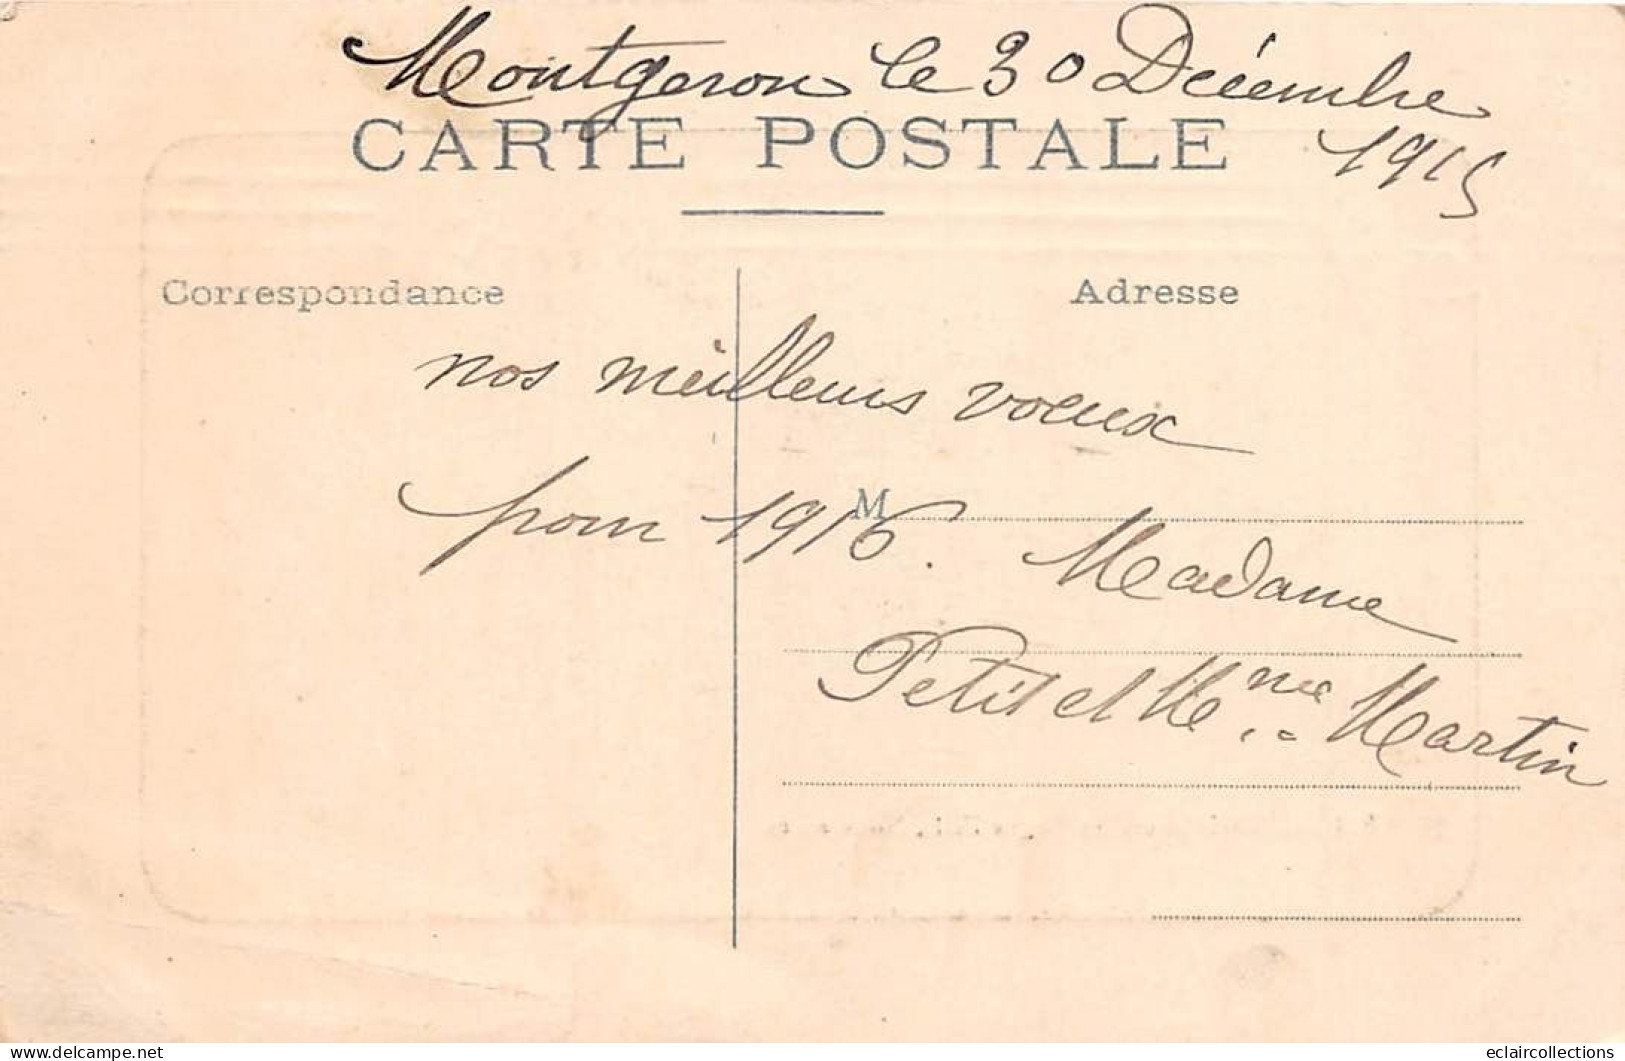 Montgeron le 30 Décembre
1915
CARTE POSTALE
Correspondance
Adresse
nos meilleurs voeux
pour 1916.
M
Madame
Petit et Mme Martin
delcampe.net
eclaircollections